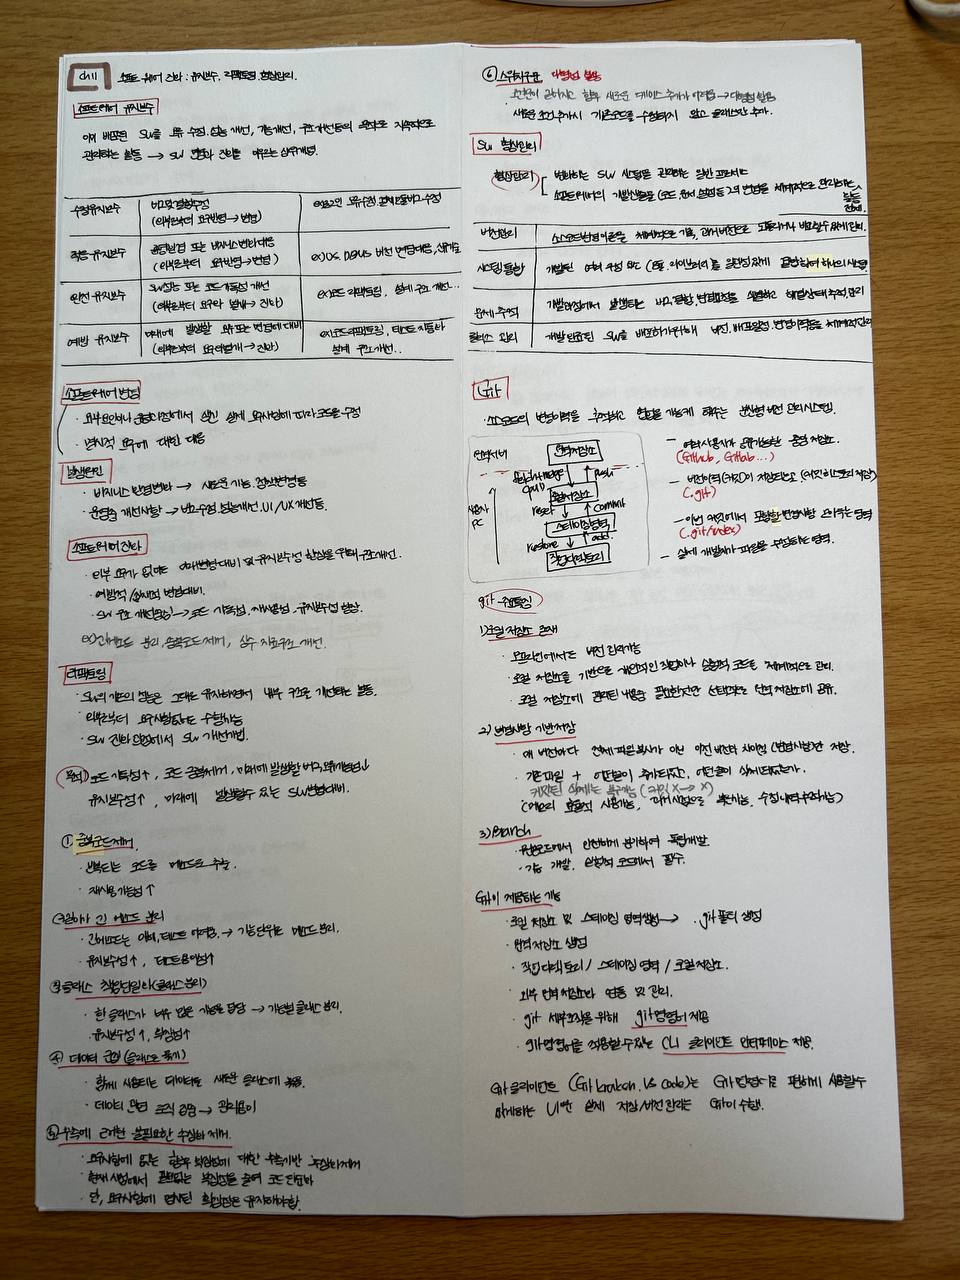 ch11 소프트웨어 진화 : 유지보수, 리팩토링, 형상관리.
소프트웨어 유지보수
이미 배포된 SW를 오류 수정, 성능 개선, 기능개선, 구조개선등의 목적으로 지속적으로
관리하는 활동 → SW 변경과 진화를 아우르는 상위개념.
수정유지보수
버그및결함수정
(외부로부터 요구발생 → 변경)
적응 유지보수
운영환경 또는 비지니스변화대응
(외부로부터 요구발생 → 변경)
ex)OS, DBMS 버전 변경대응,
완전 유지보수
SW성능 또는 코드가독성 개선
ex)코드 리팩토링, 설계 구조 개선...
예방 유지보수
미래에 발생할 오류 또는 변경에 대비
ex)코드리팩토링, 테스트 자동화
설계 구조 개선..
소프트웨어변경
· 요구사항이나 운영과정에서 생긴 실제 요구사항에 따라 코드를 수정
· 명시적 요구에 대한 대응
발생원인
· 비지니스 환경변화 → 새로운 기능,
· 운영중 개선사항 → 버그수정, 성능개선, UI/UX개선등.
소프트웨어 진화
· 외부 요구가 없어도 미래변경대비 및 유지보수성 향상을 위해 구조개선.
· 예방적/잠재적 변경대비.
· SW 구조 개선중심 → 코드 가독성, 재사용성, 유지보수성 향상.
ex) 분리, 중복코드제거, 상수 자료구조 개선.
리팩토링
· SW의 기존의 기능은 그대로 유지하면서 내부 구조를 개선하는 활동.
· 외부로부터 요구사항없이도 수행가능
· SW 진화 관점에서 SW 개선기법.
목적) 코드 가독성↑, 코드 중복제거, 미래에 발생할 버그,오류가능성↓
유지보수성↑, 미래에 발생할수 있는 SW변경대비.
① 중복코드제거.
· 반복되는 코드를 메소드로 추출.
· 재사용가능성 ↑
② 길이가 긴 메소드 분리
· 긴메소드는 이해, 테스트 어려움. → 기능단위로 메소드 분리.
· 유지보수성↑, 테스트용이성↑
③ 클래스 책임단일화(클래스분리)
· 한 클래스가 너무 많은 기능을 담당 → 기능별 클래스 분리.
유지보수성↑, 확장성↑
④ 데이터 군집(클래스로 묶기)
· 함께 사용되는 데이터를 새로운 클래스에
· 데이터 관련 로직 → 관리용이
⑤ 추측에 근거한 불필요한 추상화 제거.
· 요구사항에 없는 향후 확장성에 대한 추측기반 추상화제거
· 현재 시점에서 필요없는 복잡성을 줄여 코드 단순화
· 단, 요구사항에 명시된 확장성은 유지해야함.
⑥ 스위치구문 다형성 활용
조건이 길어지고 향후 새로운 케이스 추가가 어려움 → 다형성 활용
새로운 조건 추가시 기존코드를 수정하지 않고 클래스만 추가.
SW 형상관리
형상관리
변화하는 SW 시스템을 관리하는 일반 프로세스
소프트웨어의 개발산출물(코드, 문서, 설정등)의 변경을 체계적으로 관리하는
활동
전체.
버전관리
소스코드변경이력을 체계적으로 기록, 과거버전으로 되돌리거나 비교할수 있게관리.
시스템통합
개발된 여러 구성 요소
결합하여 하나의 시스템
문제 추적
개발과정에서 발생하는 버그,결함,변경요청을
릴리스 관리
개발 완료된 SW를 배포하기위해 버전, 배포일정, 변경이력등을 체계적관리
Git
· 소스코드의 변경이력을 추적하고 협업을 가능케 해주는 분산형 버전 관리시스템.
원격서버
원격저장소
pull
push
로컬저장소
reset
commit
사용자
PC
스테이징영역
restore
add
작업디렉토리
- 여러사용자가 공유가능한 중앙 저장소.
(Github, Gitlab...)
- 버전이력(커밋)이 저장되는곳 (커밋히스토리 저장)
(.git)
- 이번 커밋에서 포함할 변경사항 모아두는 영역
(.git/index)
- 실제 개발자가 파일을 수정하는 영역.
git 주요특징
1) 로컬 저장소 존재
· 오프라인에서도 버전 관리가능
· 로컬 저장소를 기반으로 개인적인 작업이나 실험적 코드를 체계적으로 관리.
· 로컬 저장소에 관리된 내용중 필요한것만 선택적으로 원격 저장소에 공유.
2) 변경사항 기반저장
· 매 버전마다 전체 파일복사가 아닌 이전 버전과 차이점(변경사항)만 저장.
· 기존 파일 + 어떤줄이 추가되었고, 어떤줄이 삭제되었는가.
커밋된 삭제는 복구가능 (커밋X → X)
3) Branch
· 원본코드에서 안전하게 분기하여 독립개발.
· 기능 개발, 실험적 코드에서 필수.
Git이 제공하는 기능
· 로컬 저장소 및 스테이징 영역생성 → .git 폴더 생성
· 원격저장소 생성
· 작업디렉토리 / 스테이징 영역 / 로컬저장소.
· 외부 원격저장소와 연동 및 관리.
· git 세부조작을 위해 git명령어 제공
· git명령어를 적용할수있는 CLI 클라이언트 인터페이스 제공.
Git 클라이언트 (Git kraken, VS code)는 Git 명령어를 편하게 사용할수
있게하는 UI며 실제 저장/버전관리는 Git이 수행.